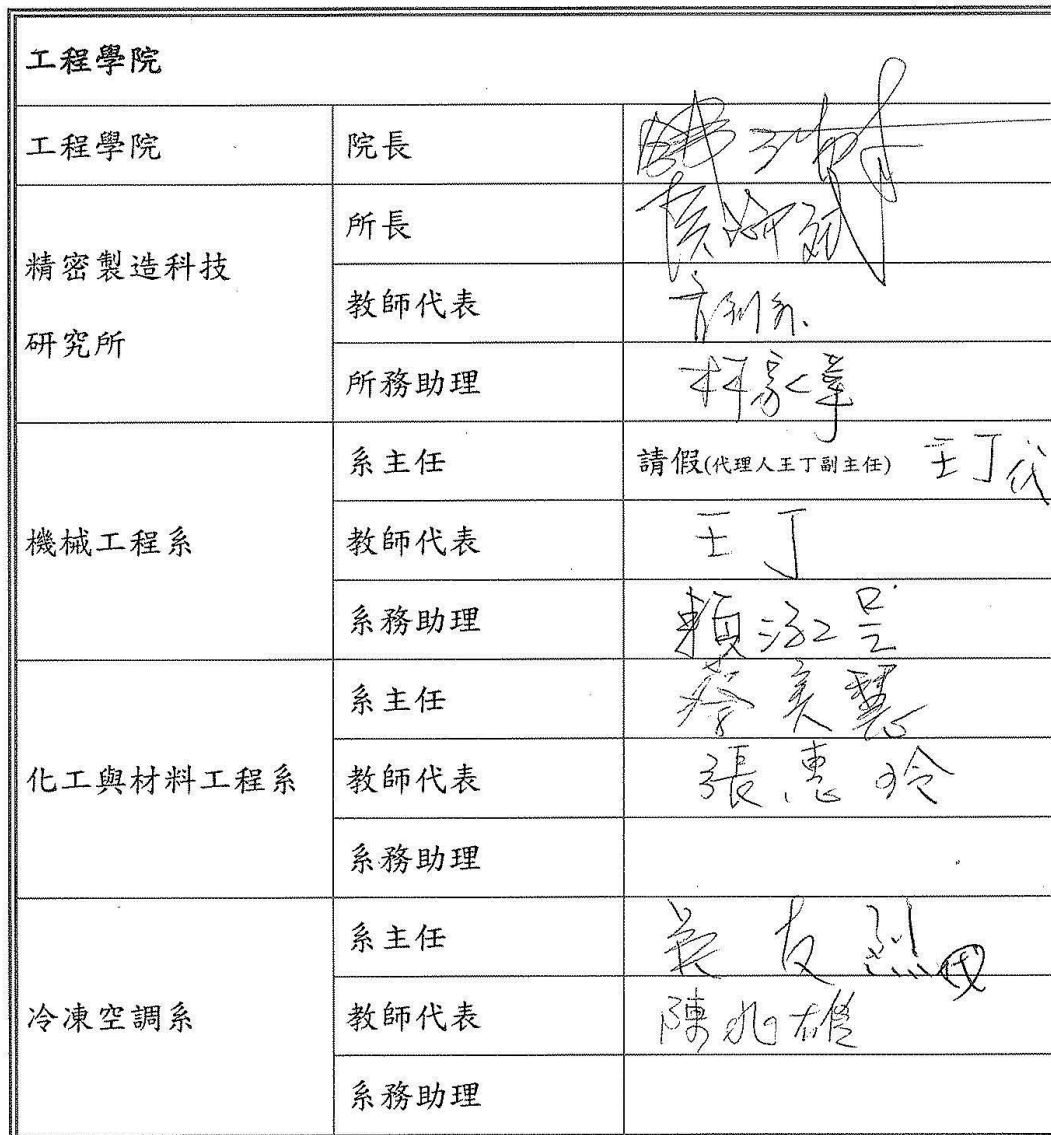 工程學院
工程學院 院長
精密製造科技
研究所
所長
教師代表
所務助理 柯
機械工程系
系主任 請假(代理人王丁副主任) 王丁代
教師代表 王丁
系務助理 賴
化工與材料工程系
系主任 蔡美慧
教師代表 張惠玲
系務助理
冷凍空調系
系主任 吳友烈 代
教師代表 陳兆雄
系務助理